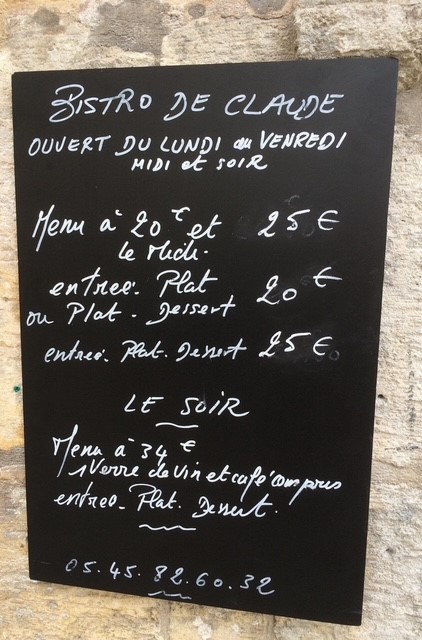 BISTRO DE CLAUDE
OUVERT DU LUNDI au VENREDI
MIDI et SOIR
Menu à 20 € et 25 €
le Midi.
entreé. Plat 20 €
ou Plat. Dessert
entreé. Plat. Dessert 25 €
LE SOIR
Menu à 34 €
1 Verre de vin et café compris
entreé. Plat. Dessert.
05.45.82.60.32